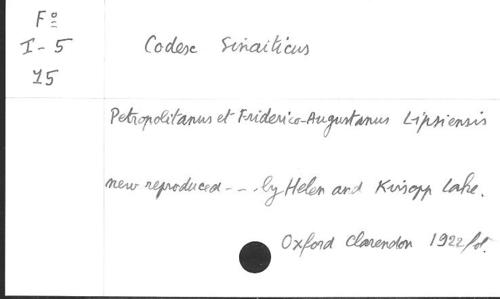 Fº
I-5
15
Codex Sinaiticus
Petropolitanus et Friderico-Augustanus Lipsiensis
new reproduced - - . by Helen and Kirsopp Lake.
Oxford Clarendon 1922 fol.